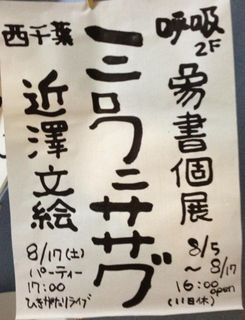 呼吸
2F
象書個展
8/5
〜8/17
16:00
open
(11日休)
ミロワニササグ
西千葉
近澤文絵
8/17(土)
パーティー
17:00
ひきがたりライブ